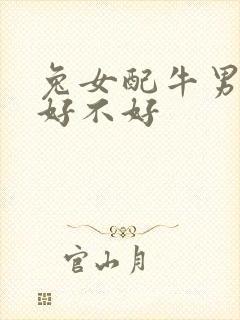 兔女配牛男
好不好
官山月